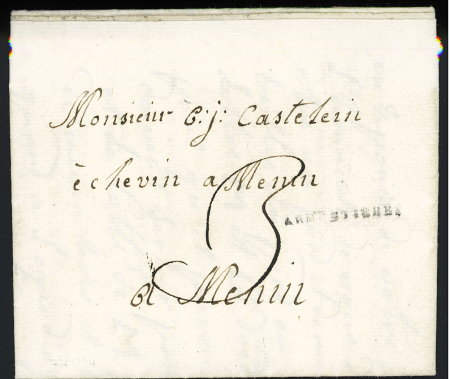 Monsieur C: j: Castelein
èchevin a Menin
3
ARMENTIERES
à Menin